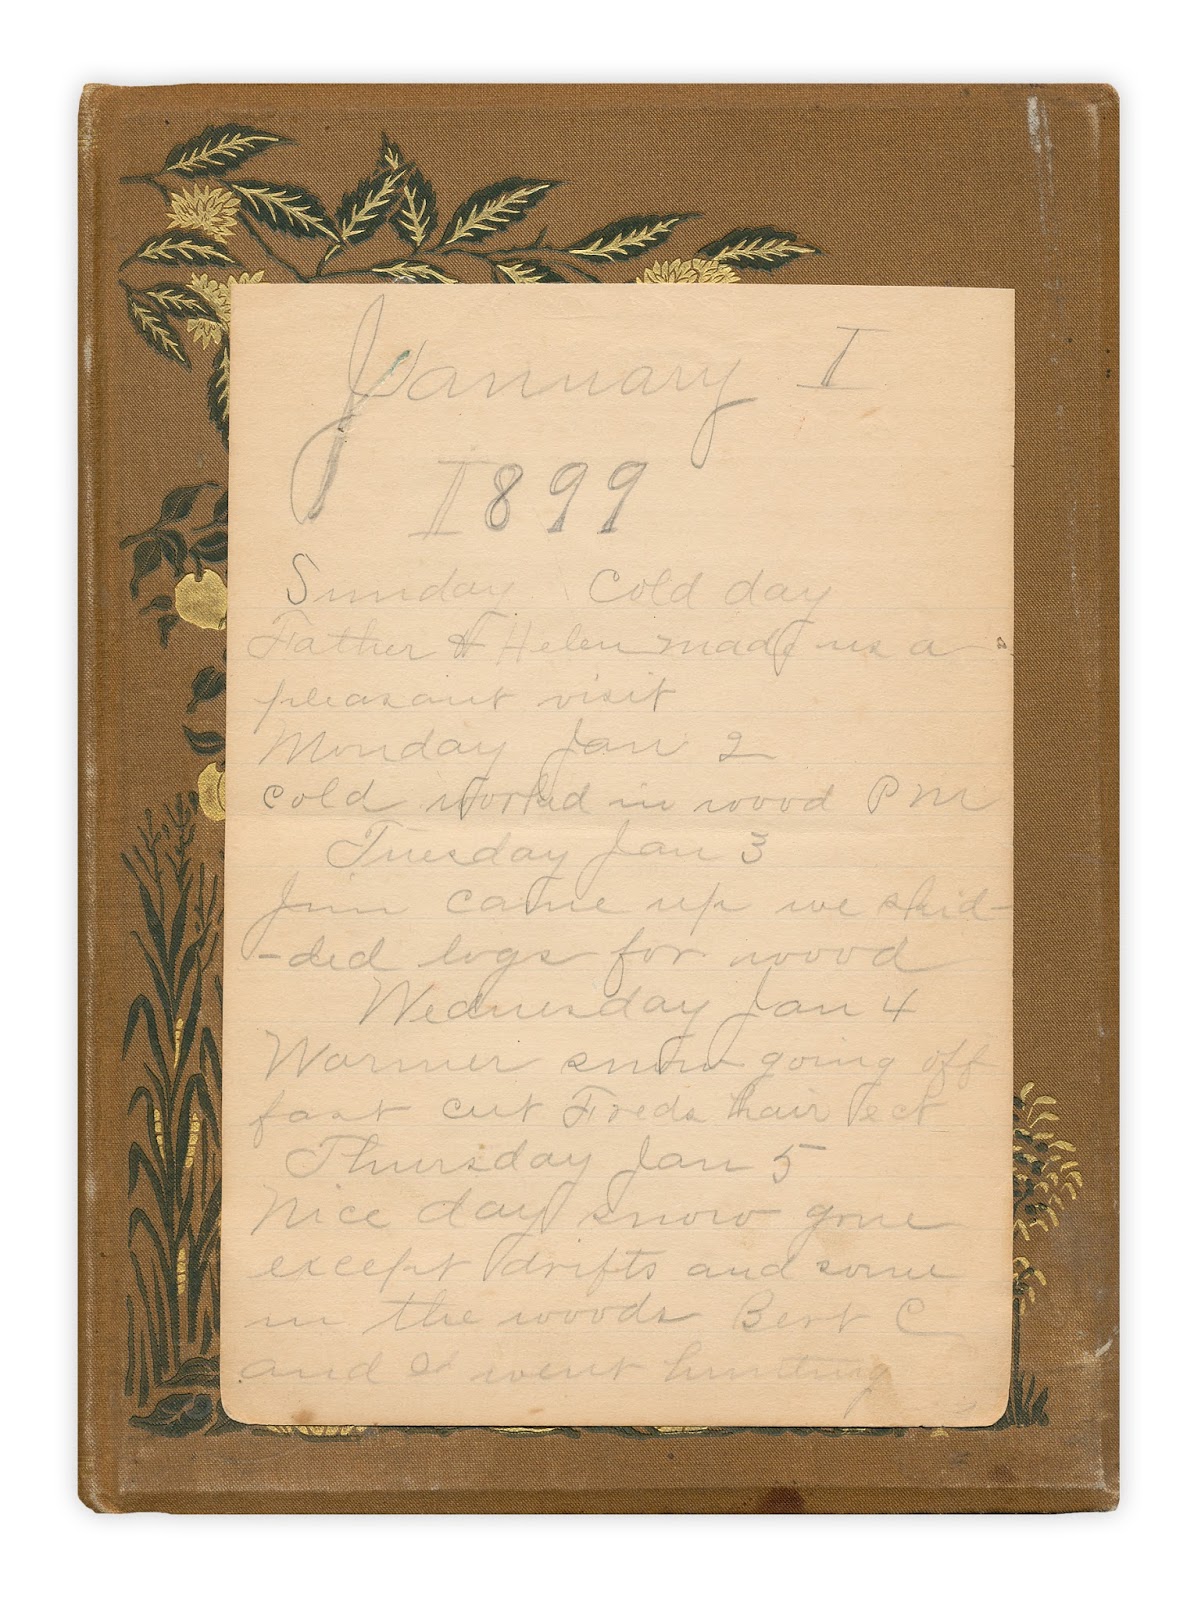 January I
I899
Sunday Cold day
Father & Helen made us a
pleasant visit
Monday Jan 2
cold worked in wood P M
Tuesday Jan 3
Jim came up we skid-
-ded logs for wood
Wednesday Jan 4
Warmer snow going off
fast cut Freds hair ect
Thursday Jan 5
Nice day snow gone
except drifts and some
in the woods Bert C
and I went hunting